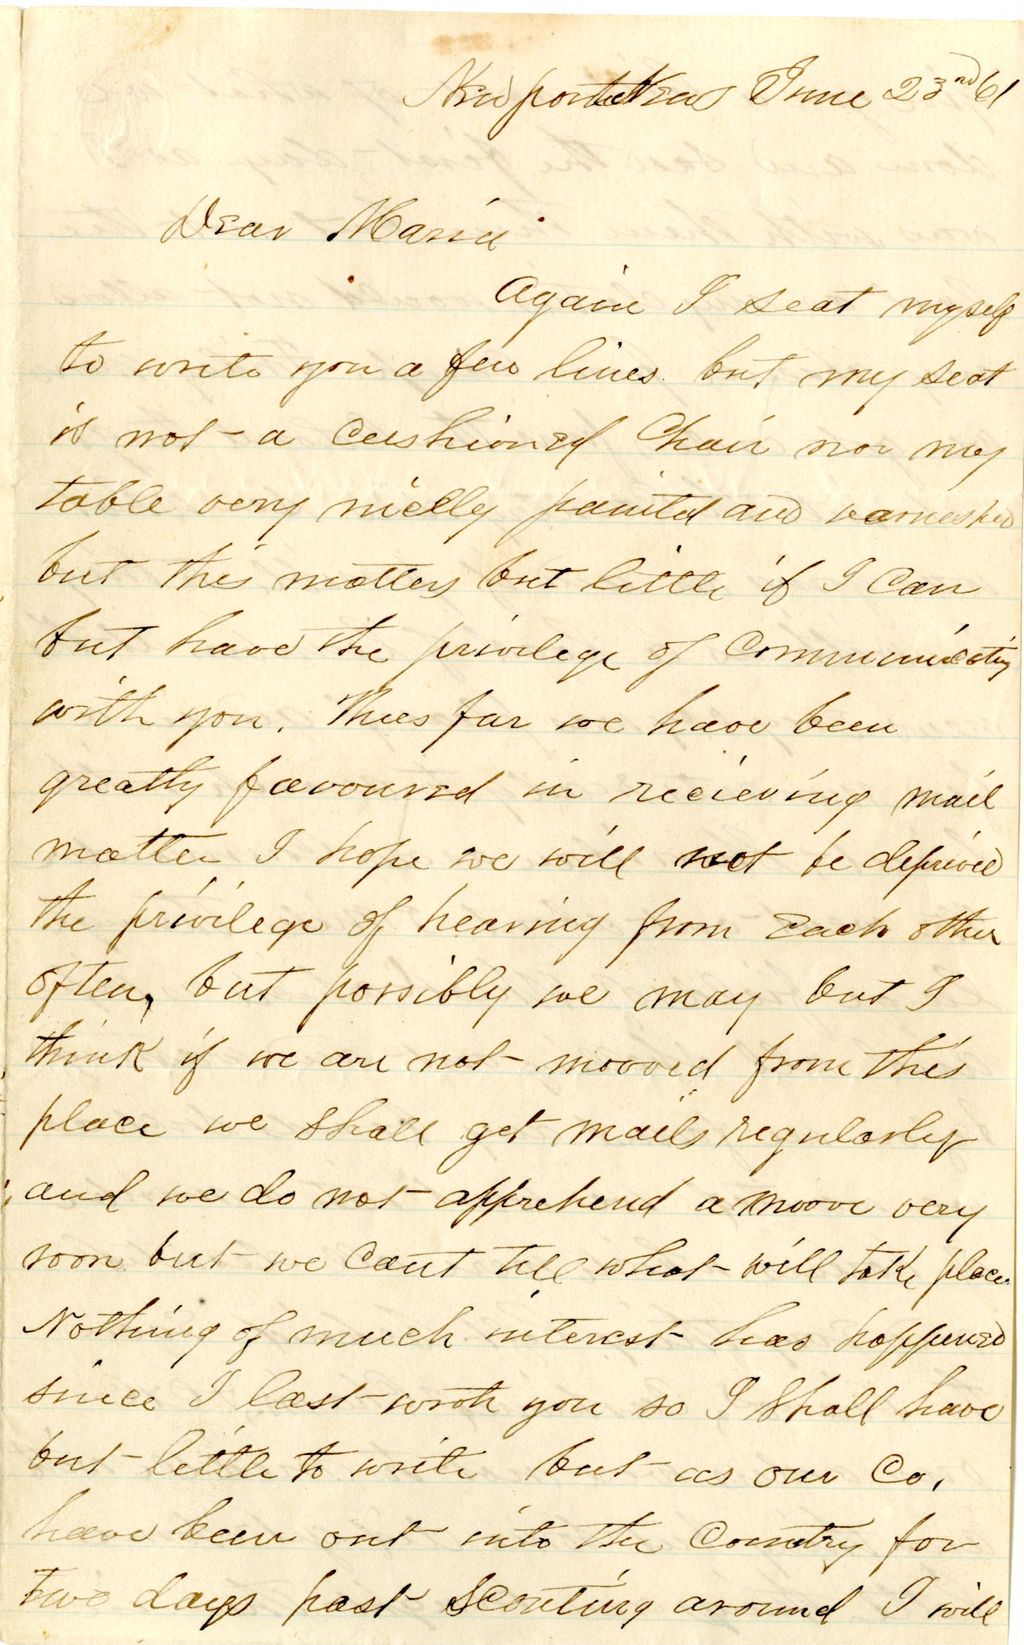 Newport News June 23rd 61
Dear Maria
Again I seat myself
to write you a few lines. but my seat
is not a cushioned Chair nor my
table very nicely painted and varnished
but this matters but little if I Can
but have the privilege of Communicating
with you. Thus far we have been
greatly favoured in recieving mail
matter I hope we will not be deprived
the privilege of hearing from Each other
often, but possibly we may but I
think if we are not mooved from this
place we shall get mails regularly
and we do not apprehend a moove very
soon. but we Cant tell what will take place
Nothing of much interest has happened
since I last wrote you so I shall have
but little to write but as our Co.
have been out into the Country for
two days past scouting around I will